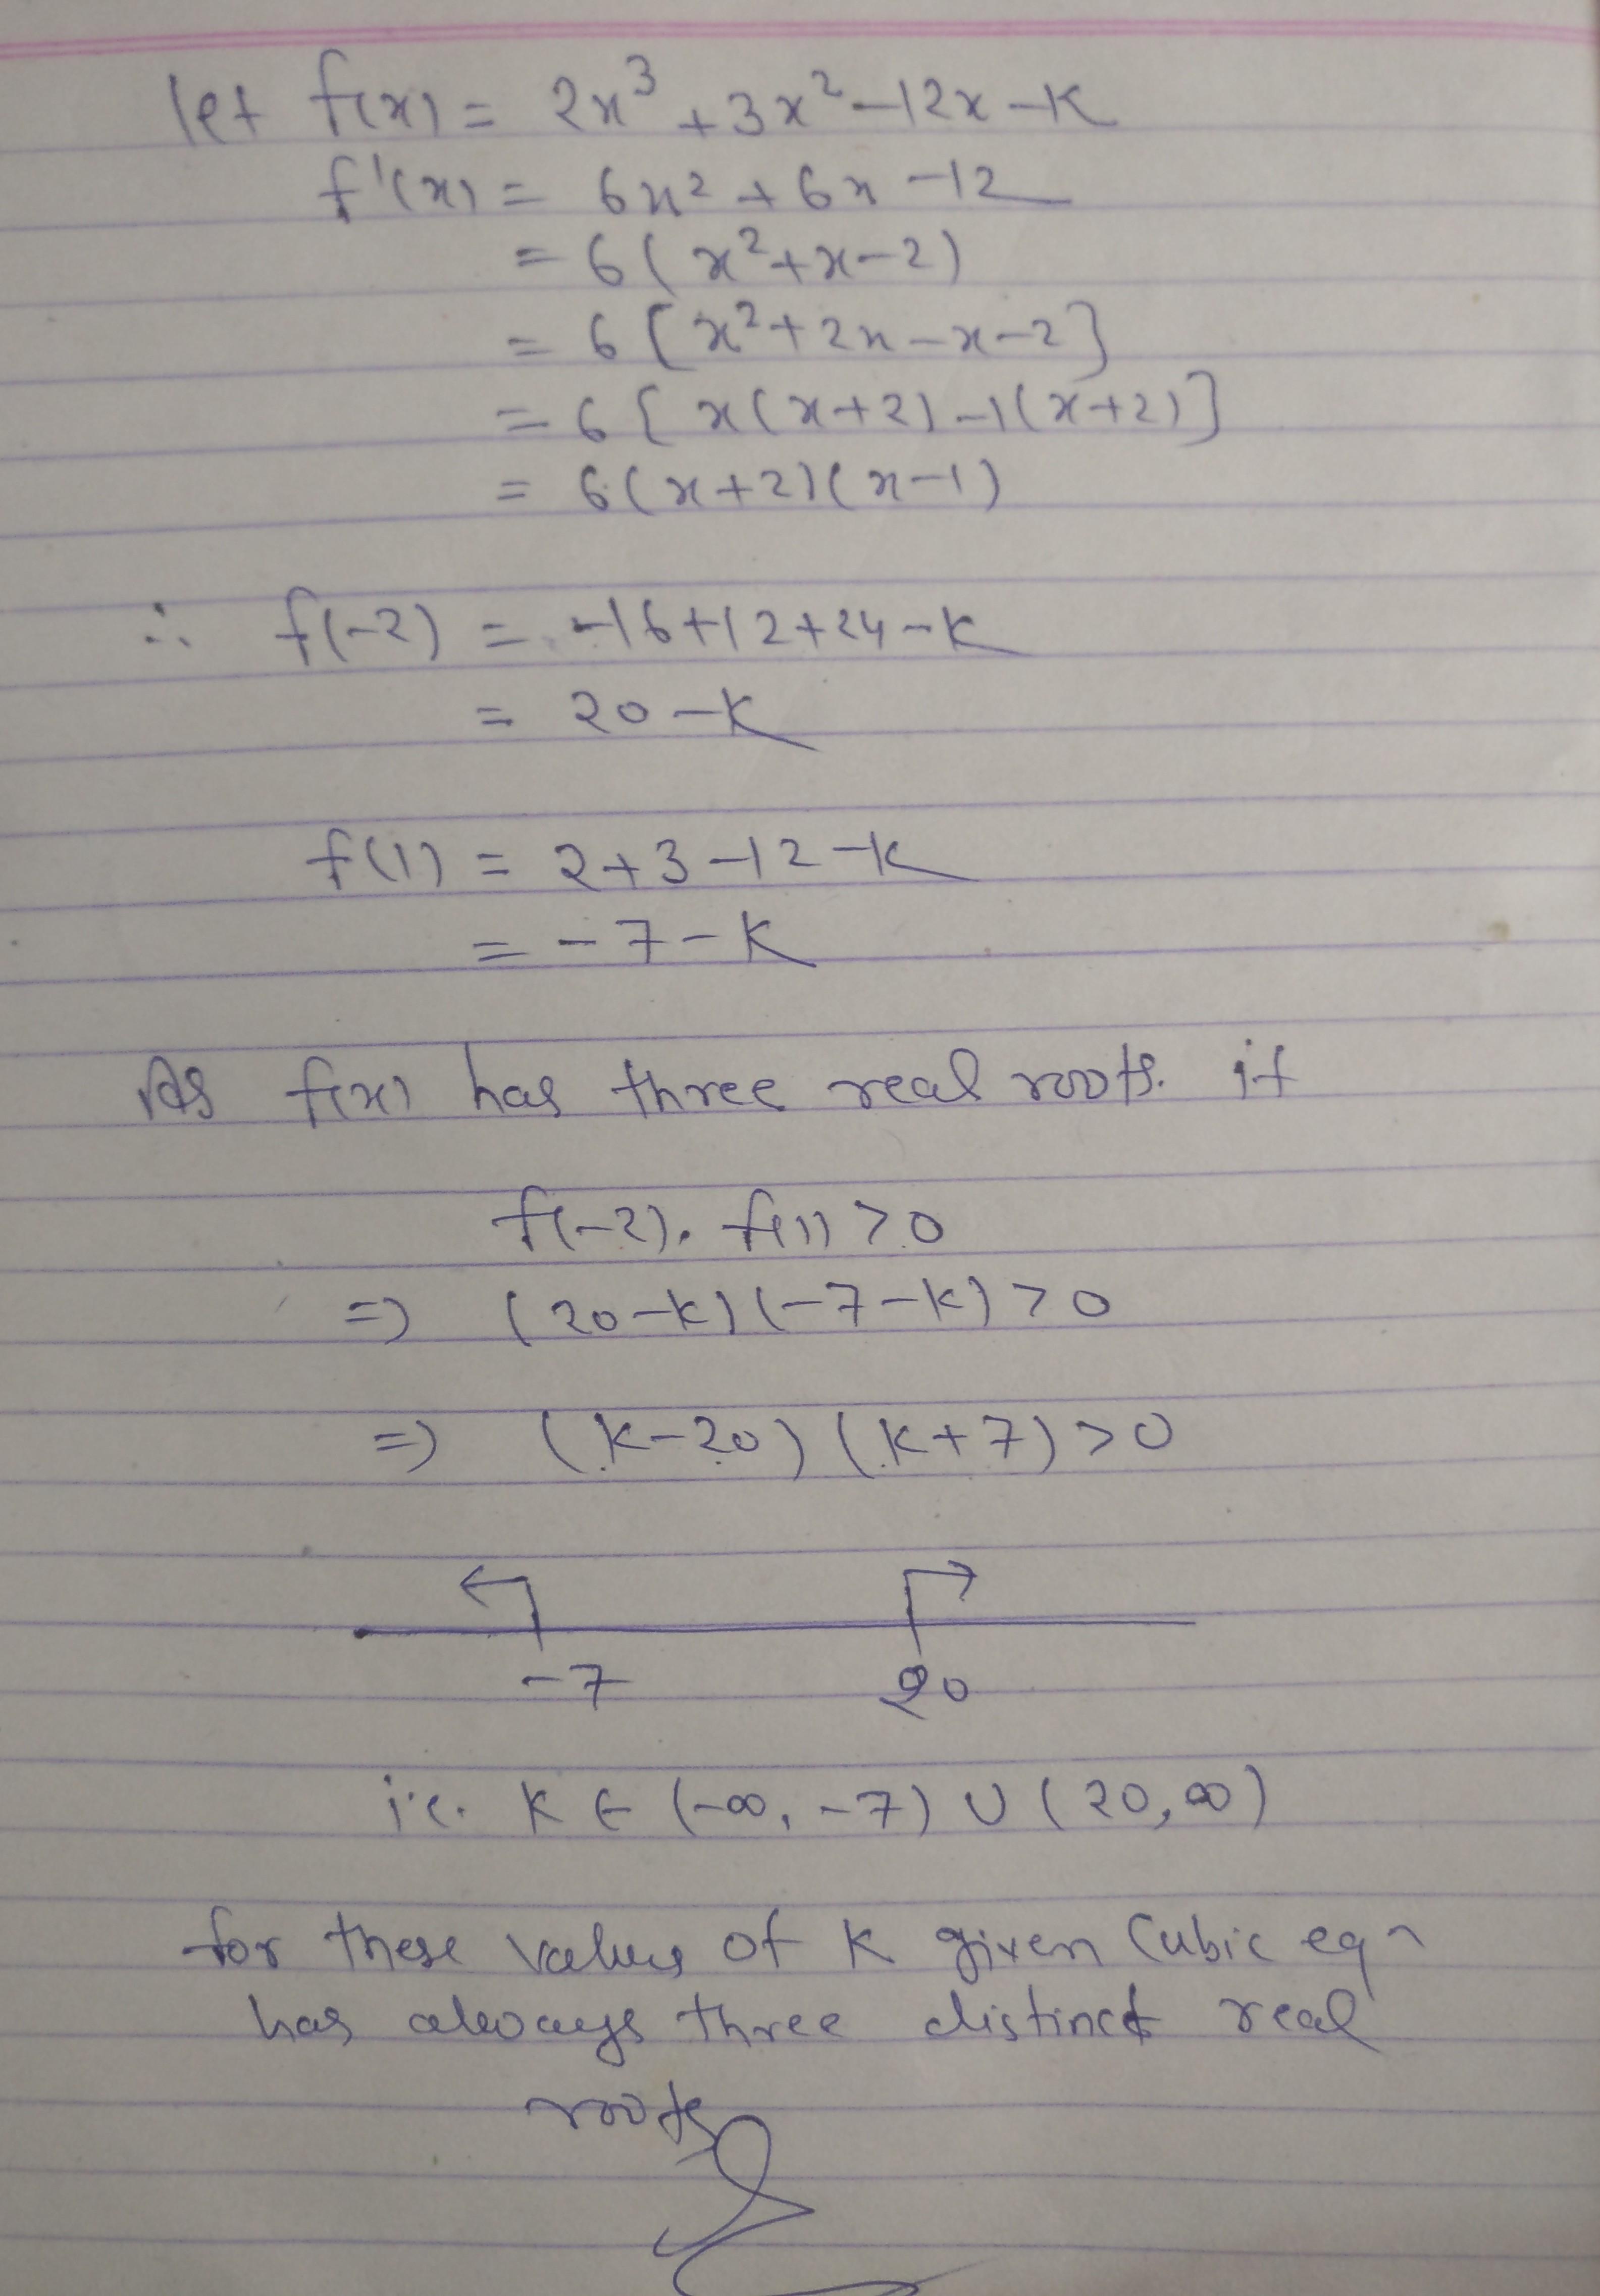 let f(x) = 2x³ + 3x² - 12x - K
f'(x) = 6x² + 6x - 12
= 6( x² + x - 2)
= 6 [ x² + 2x - x - 2]
= 6 [ x(x+2) - 1(x+2)]
= 6(x+2)(x-1)
∴ f(-2) = -16+12+24-K
= 20-K
f(1) = 2+3-12-K
= -7-K
As f(x) has three real roots. if
f(-2). f(1) > 0
=) (20-K)(-7-K) > 0
=) (K-20) (K+7) > 0
-7 20
i.e. K ∈ (-∞, -7) ∪ (20, ∞)
for these values of K given Cubic eqn
has always three distinct real
roots